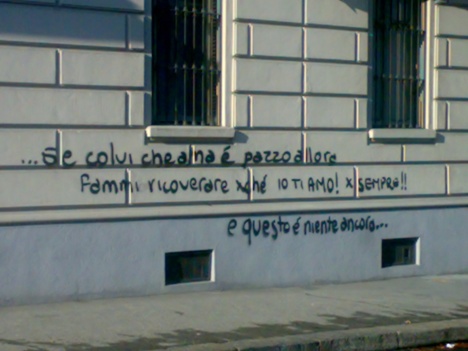 ...se colui che ama é pazzo allora
fammi ricoverare xché IO TI AMO! x SEMPRE!!
e questo é niente ancora...